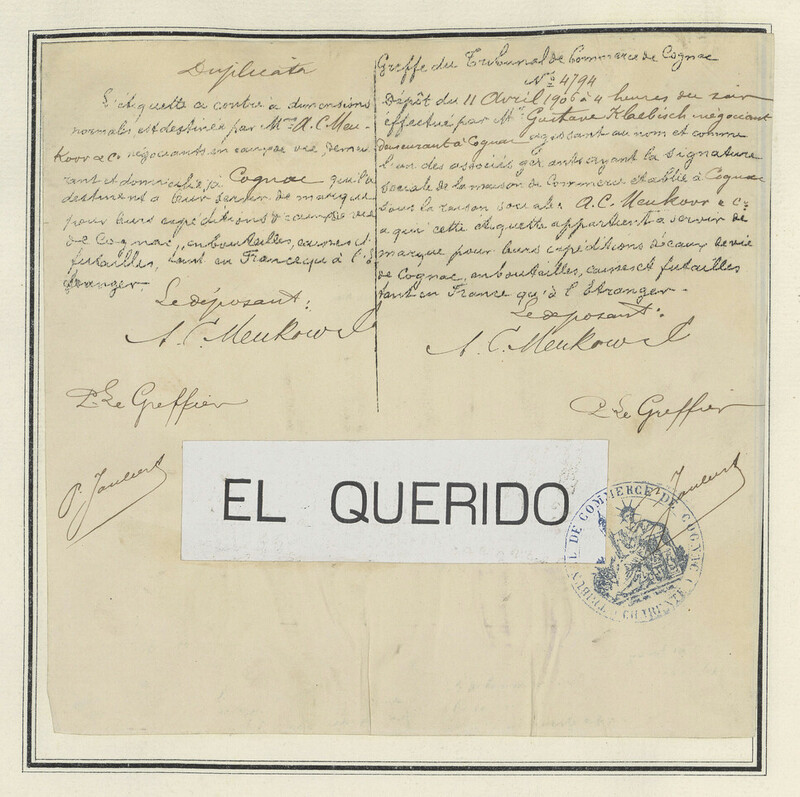 Duplicata
L'étiquette ci contre à dimensions
normales est destinée par Mrs A. C. Meu-
kow & Co négociants en eaux de vie demeu
rant et domiciliés à Cognac qui la
destinent à leur servir de marque
pour leurs expéditions d'eaux de vie
de Cognac, en bouteilles, caisses et
futailles, tant en France qu'à l'é
tranger.
Le déposant:
A. C. Meukow & C
Pr Le Greffier
P. Jaulard
Greffe du Tribunal de Commerce de Cognac
No 4794
Dépôt du 11 Avril 1906 à 4 heures du soir
effectué par Mr Gustave Klaebisch négociant
demeurant à Cognac agissant au nom et comme
l'un des associés gérants ayant la signature
sociale de la maison de Commerce établie à Cognac
sous la raison sociale A. C. Meukow & Co
a qui cette étiquette appartient à servir de
marque pour leurs expéditions d'eaux de vie
de Cognac, en bouteilles, caisses et futailles
tant en France qu'à l'étranger.
Le déposant:
A. C. Meukow & C
Pr Le Greffier
EL QUERIDO
TRIBUNAL DE COMMERCE DE COGNAC
CHARENTE